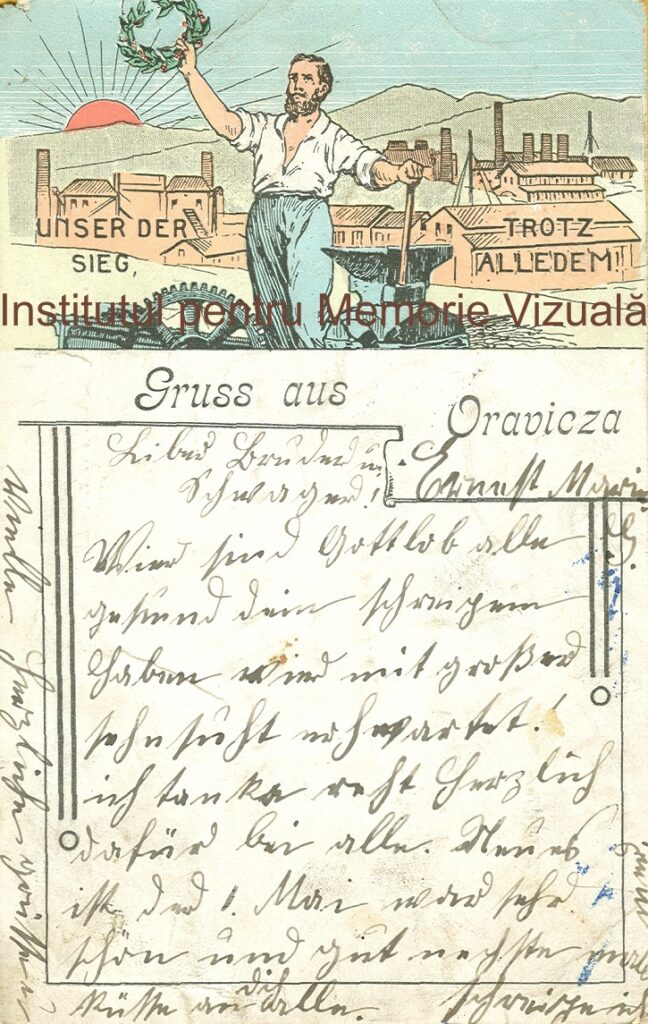 UNSER DER
SIEG,
TROTZ
ALLEDEM!
Institutul pentru Memorie Vizuală
Gruss aus
Oravicza
Libes Bruder u
Schwager!
Ernest Marie
Wier sind Gottlob alle
gesund dein schreipem
haben wier mit großer
sehnsuht erhwartet!
ich tanka reht Herzlich
dafür bei alle. Neues
ist der 1. Mai war sehr
schön und gut nechste mal
schreipe ich
Küsse an dich alle.
Herzliche